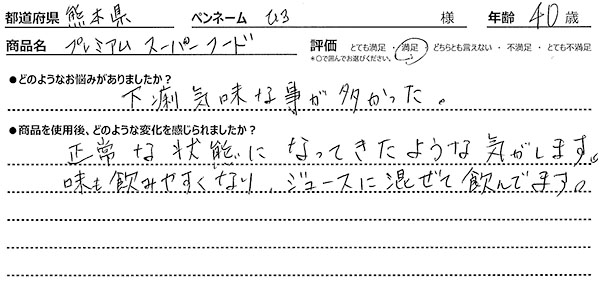 都道府県 熊本県 ペンネーム ひろ 様 年齢 40歳
商品名 プレミアム スーパーフード 評価 とても満足・満足・どちらとも言えない・不満足・とても不満足
*○で囲んでお選びください。
●どのようなお悩みがありましたか？
下痢気味な事が多かった。
●商品を使用後、どのような変化を感じられましたか？
正常な状態に なってきたような気がします。
味も飲みやすくなり、ジュースに混ぜて飲んでます。